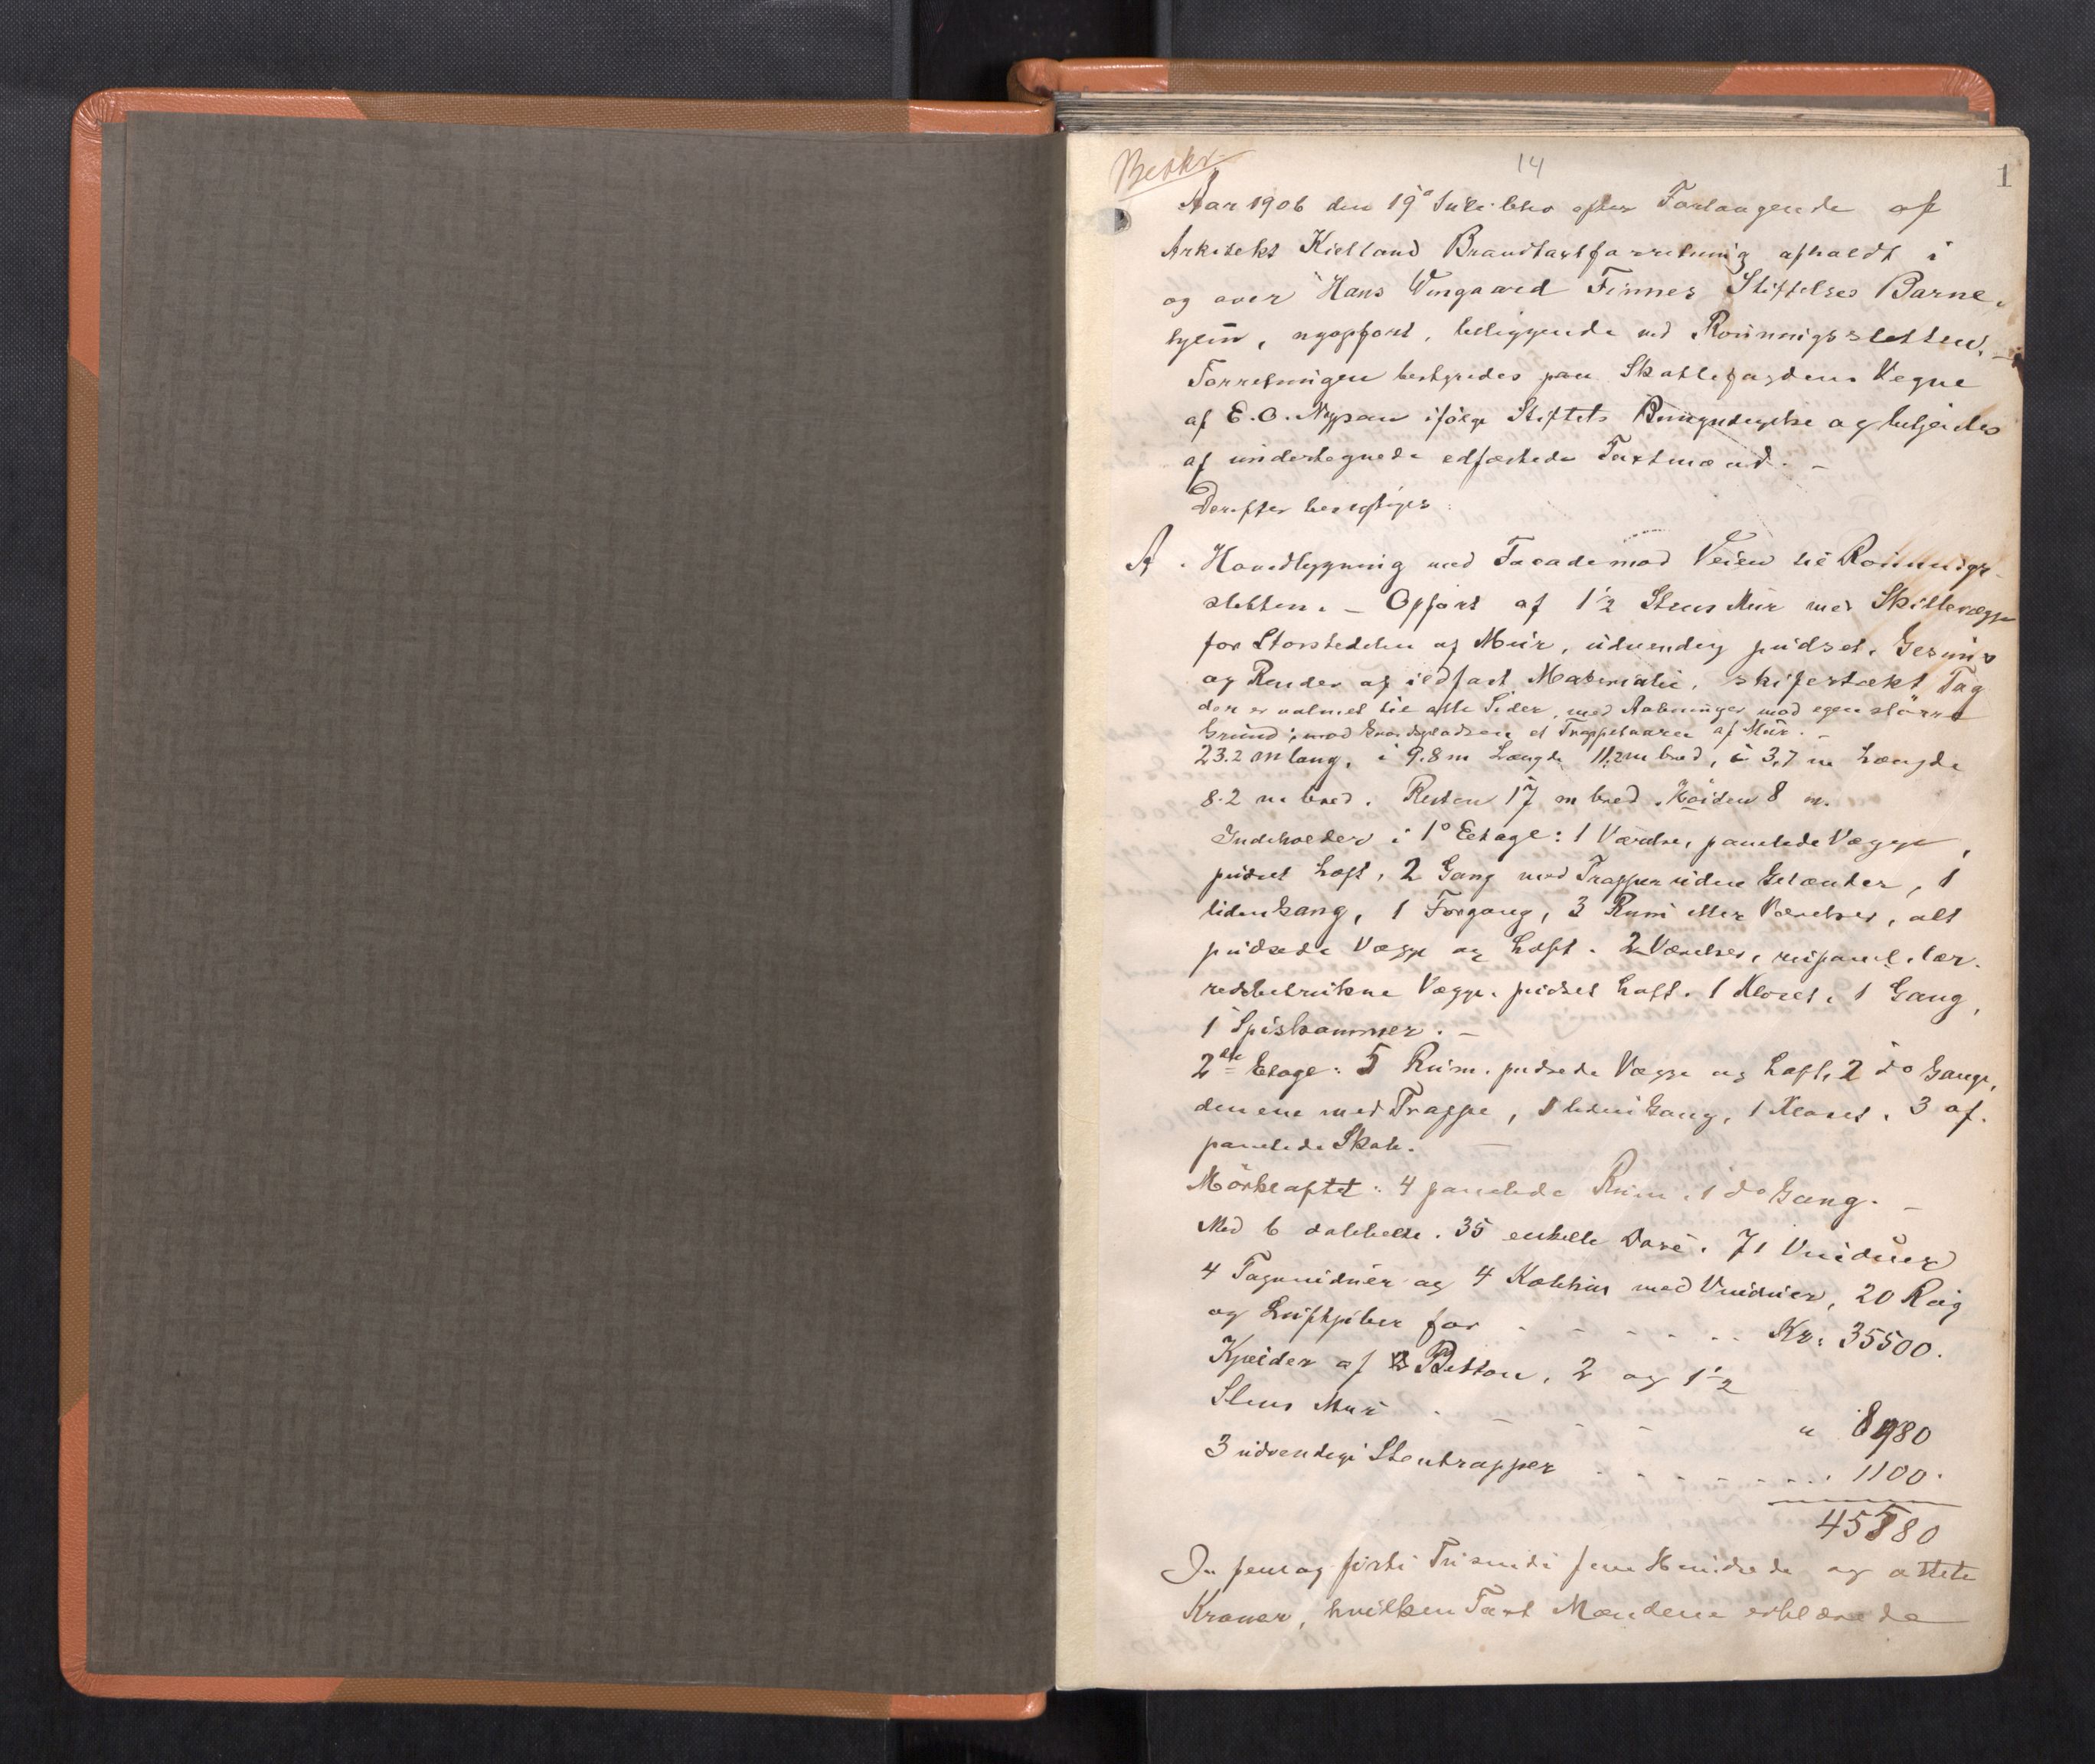 Beskr.
14
1
Aar 1906 den 19 Juli blev efter Forlangende af
Arkitekt Kielland Brandtaxtforretning afholdt i
og over Hans Wingaard Finnes Stiftelses Barne-
hjem, nyopfört, beliggende ved Rönningsletten. -
Forretningen bestyredes paa Skattefogdens Vegne
af E. O. Nypan ifölge Stiftets Bemyndigelse og betjentes
af undertegnede edfæstede Taxtmænd. -
Derefter besigtiges:
A. Hovedbygning med Facade mod Veien til Rönnings-
sletten. - Opfört af 1 1/2 Stens Mur med Skillevægge
for Störstedelen af Mur, udvendig pudset. Gesims
og Render af ildfast Materiale, skifertækt Tag
der er valmet til alle Sider, med Aabninger mod egen större
Grund; mod Gaardspladsen et Trappetaarn af Mur. -
23.2 m lang, i 9.8 m Længde 11.2 m bred, i 3,7 m Længde
8.2 m bred. Resten 17 m bred. Höiden 8 m.
Indeholder i 1° Etage: 1 Værelse, panelede Vægge,
pudset Loft, 2 Gang med Trapper uden Gelænder, 1
liden Gang, 1 Forgang, 3 Rum eller Værelser, alt
pudsede Vægge og Loft. 2 Værelser, rupanel, lær-
redsbetrukne Vægge, pudset Loft. 1 Kloset, 1 Gang,
1 Spiskammer. -
2den Etage: 5 Rum, pudsede Vægge og Loft, 2 do Gange,
den ene med Trappe, 1 liden Gang, 1 Kloset, 3 af-
panelede Skab. -
Mörkeloftet: 4 panelede Rum, 1 do Gang. -
Med 6 dobbelte, 35 enkelte Döre, 71 Vinduer
4 Tagvinduer og 4 Kobhus med Vinduer, 20 Rög
og Luftpiber for - - - - - Kr: 35500.
Kjælder af Betton, 2 og 1 1/2
Stens Mur - - - - " 8980
3 udvendige Stentrapper - - - - - - 1100.
45580
Er fem og förti Tusinde fem Hundrede og ottete
Kroner, hvilken Taxt Mændene erklærede